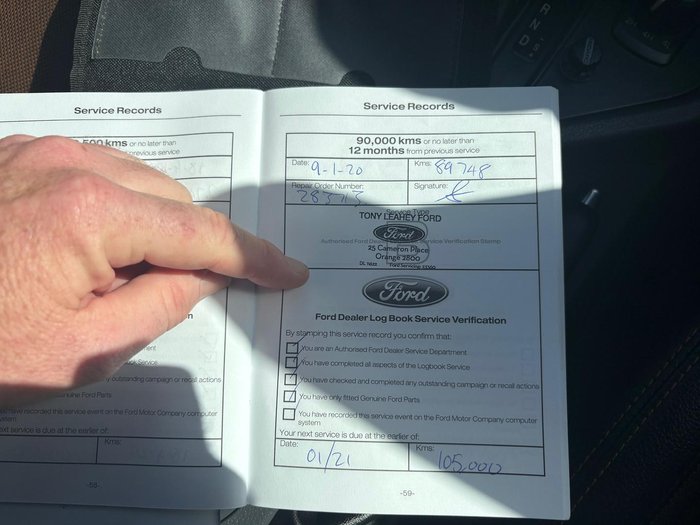 Service Records
500 kms or no later than
previous service
genuine Ford Parts
ou have recorded this service event on the Ford Motor Company computer
system
next service is due at the earlier of:
Kms:
-58-
Service Records
90,000 kms or no later than
12 months from previous service
Date: 9-1-20
Kms: 89748
Repair Order Number:
Signature:
Service Type
TONY LEAHEY FORD
Ford
Authorised Ford Dealer Service Verification Stamp
25 Cameron Place
Orange 2800
Ford
Ford Dealer Log Book Service Verification
By stamping this service record you confirm that:
You are an Authorised Ford Dealer Service Department
You have completed all aspects of the Logbook Service
You have checked and completed any outstanding campaign or recall actions
You have only fitted Genuine Ford Parts
You have recorded this service event on the Ford Motor Company computer
system
Your next service is due at the earlier of:
Date: 01/21
Kms: 105,000
-59-
R
N
D
S